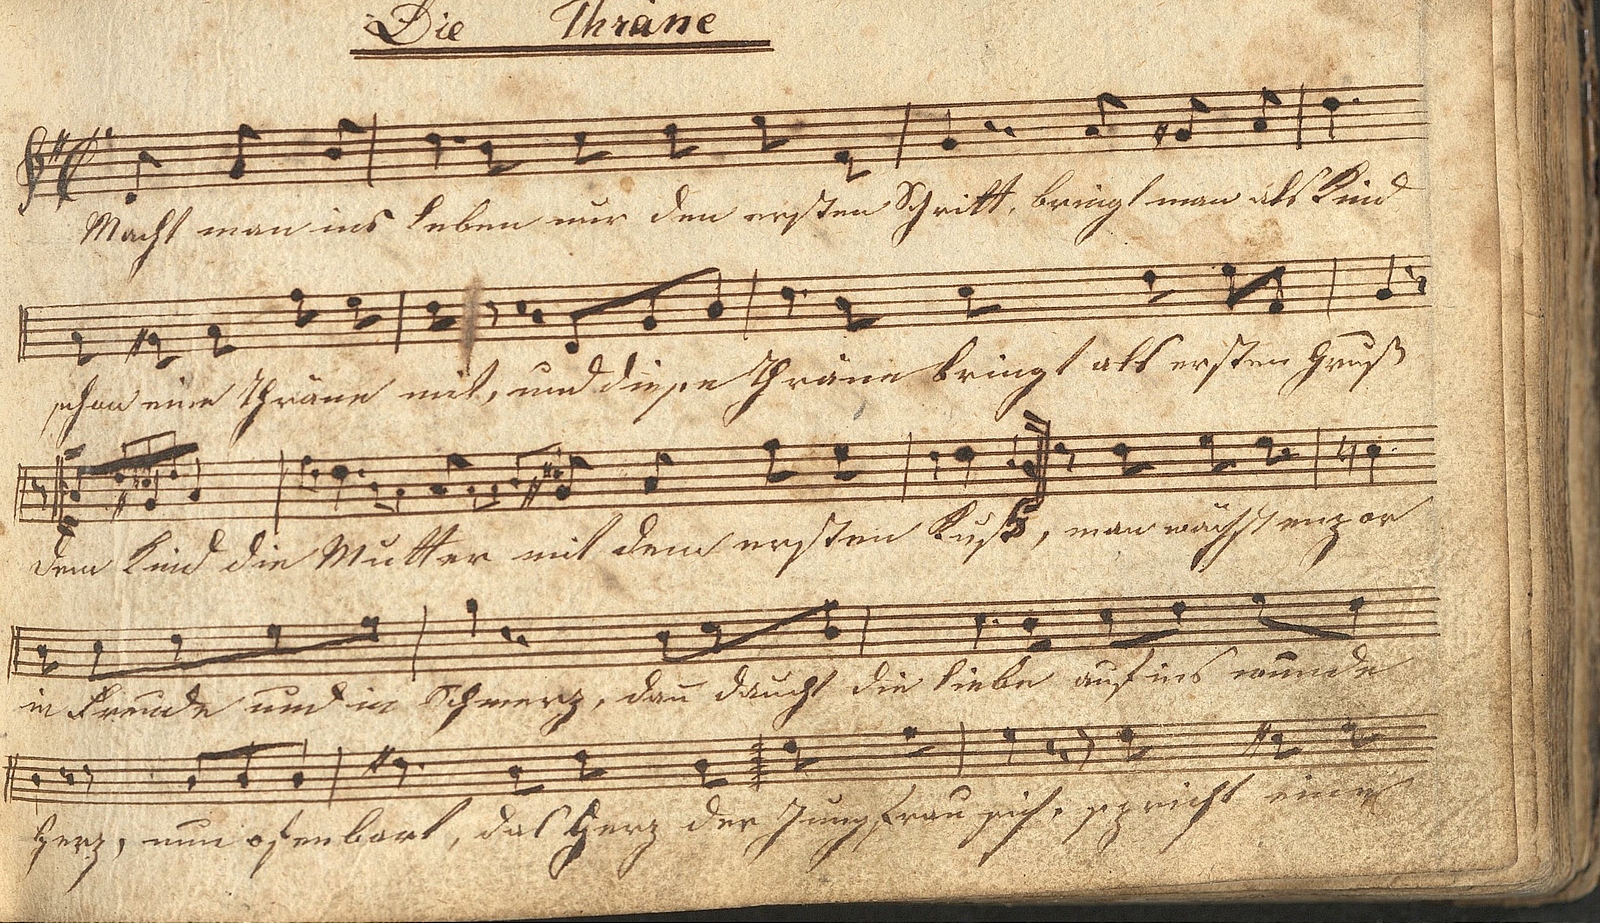 Die Thräne
Macht man ins Leben nur den ersten Schritt, bringt man als Kind
schon eine Thräne mit, und diese Thräne bringt als ersten Gruß
dem Kind die Mutter mit dem ersten Kuß, man wächst empor
in Freude und in Schmerz, dañ daucht die Liebe auf ins wunde
Herz, nun ofenbart, das Herz der Jungfrau sich, spricht eine